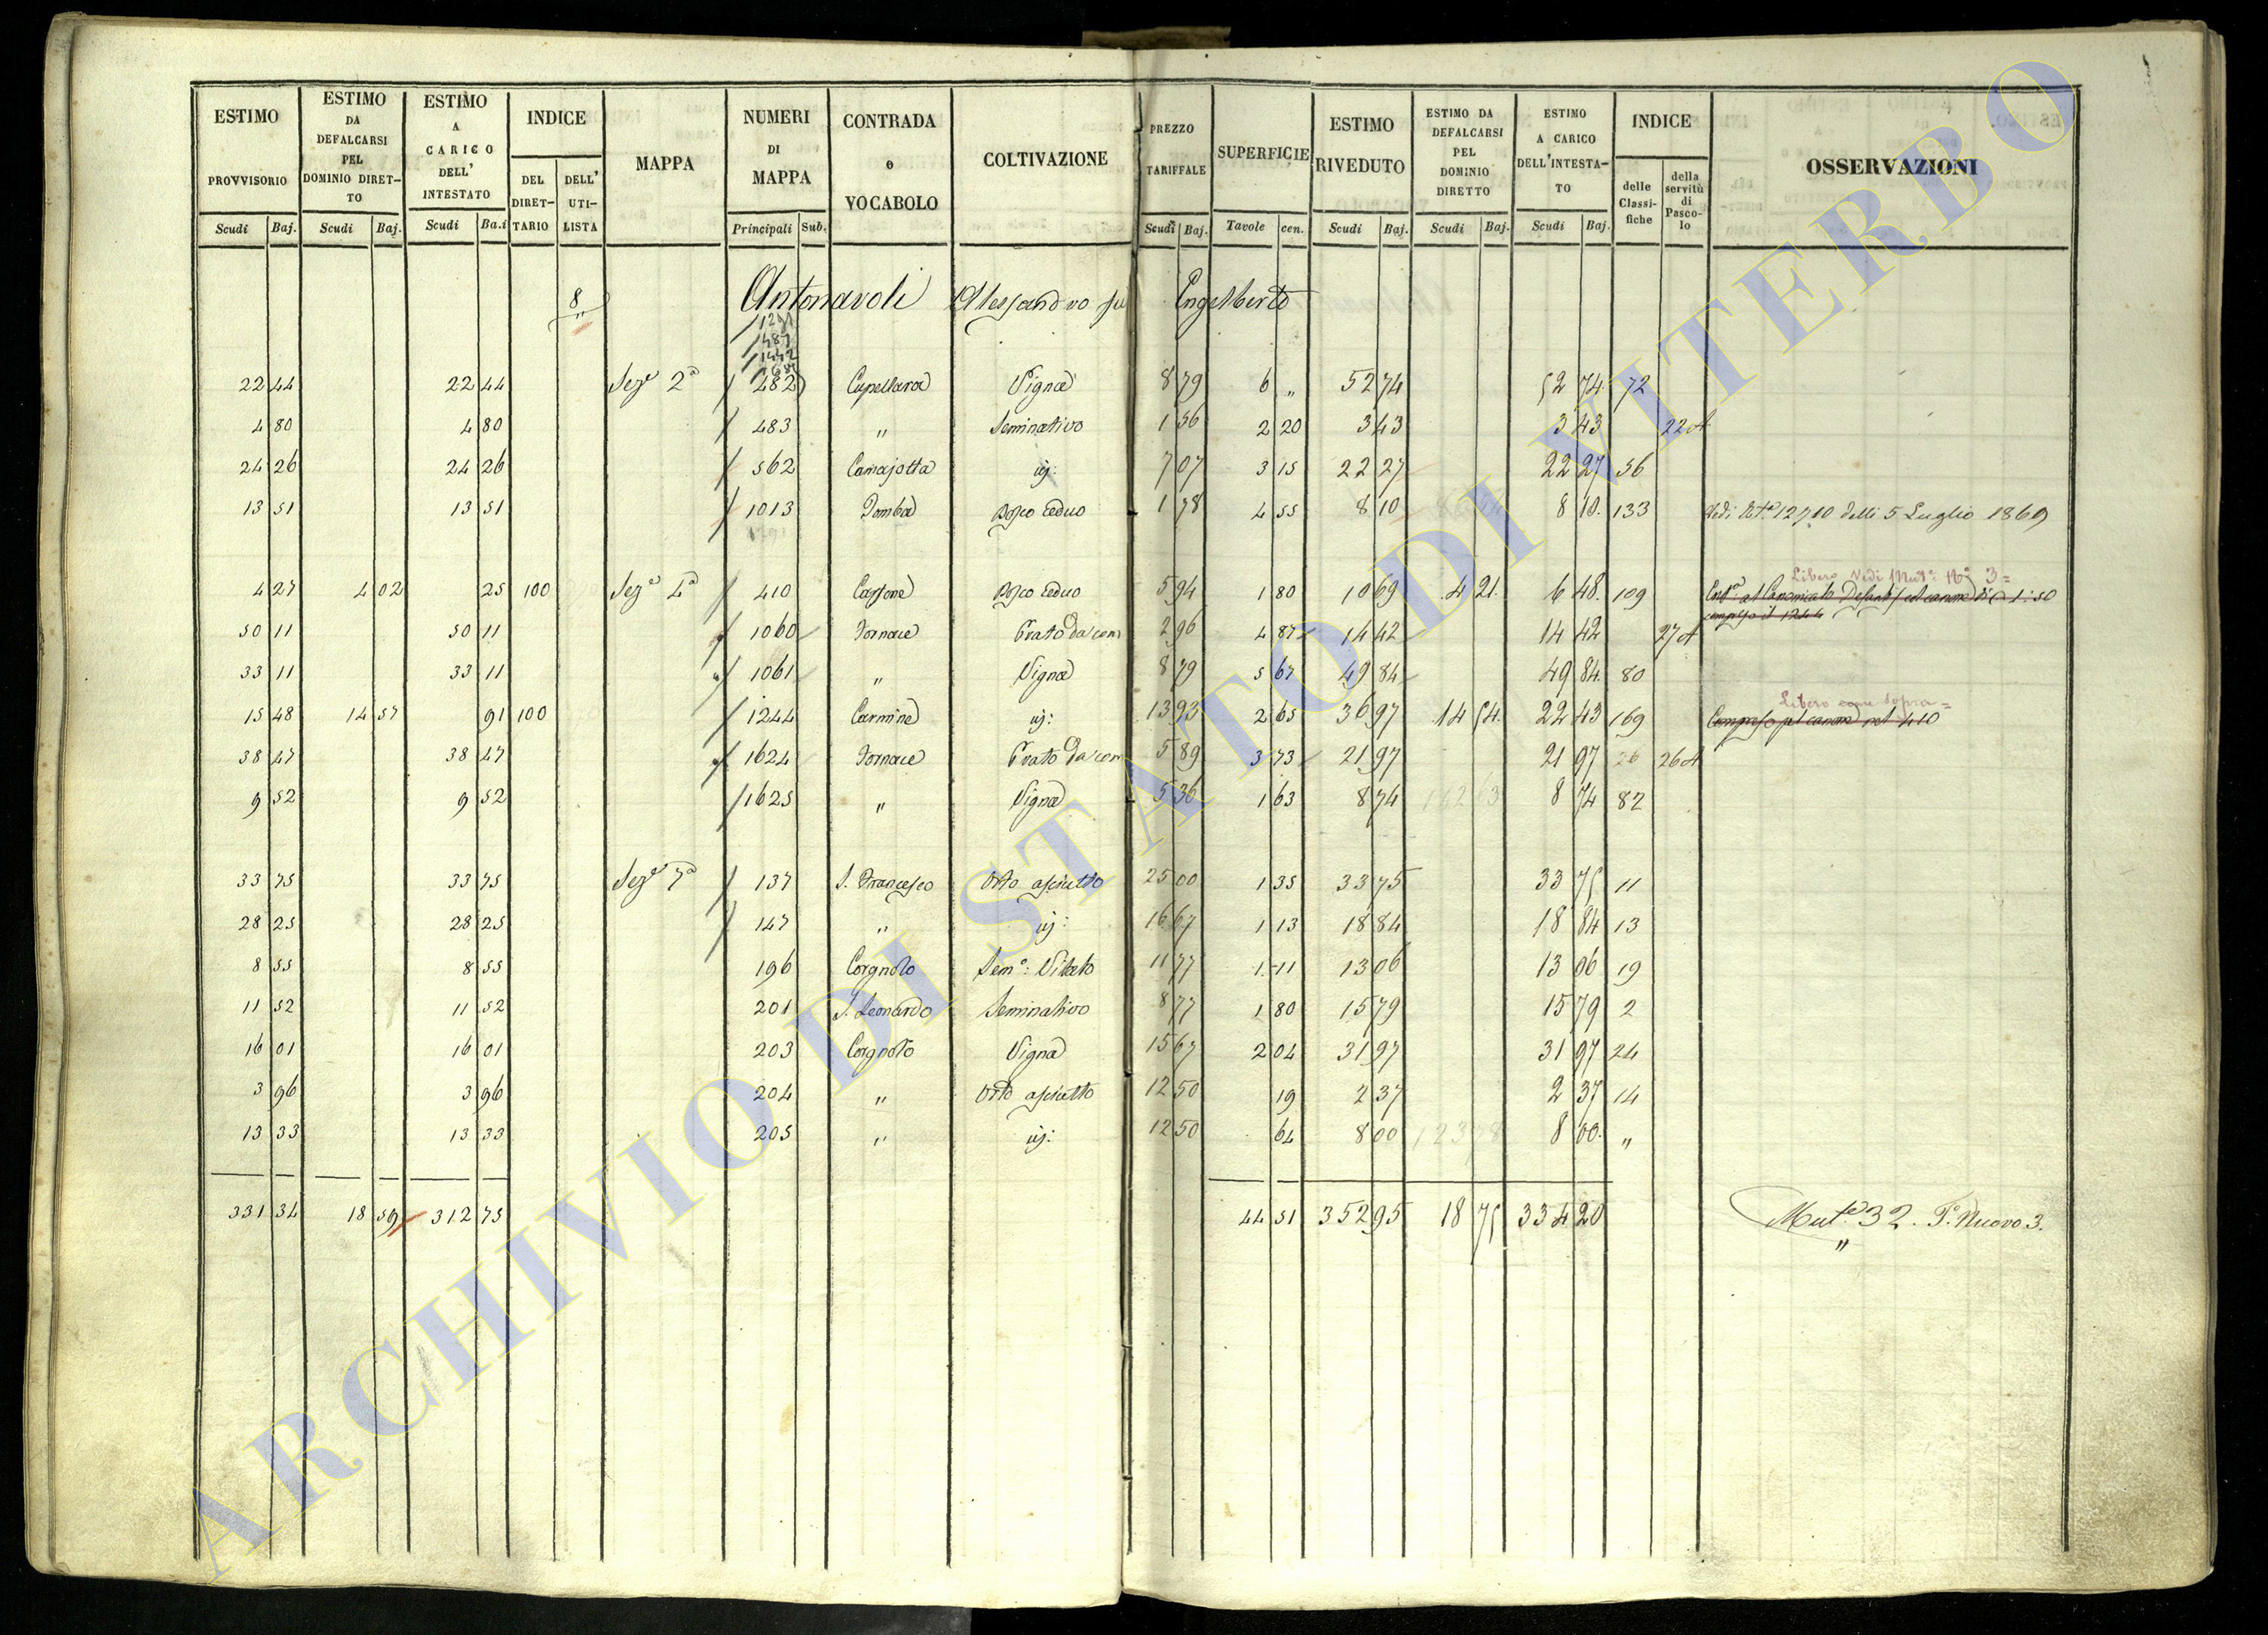 ESTIMO PROVVISORIO Scudi Baj. | ESTIMO DA DEFALCARSI PEL DOMINIO DIRETTO Scudi Baj. | ESTIMO A CARICO DELL' INTESTATO Scudi Ba.i | INDICE DEL DIRETTARIO DELL' UTILISTA | MAPPA | NUMERI DI MAPPA Principali Sub. | CONTRADA o VOCABOLO | COLTIVAZIONE | PREZZO TARIFFALE Scudi Baj. | SUPERFICIE Tavole cen. | ESTIMO RIVEDUTO Scudi Baj. | ESTIMO DA DEFALCARSI PEL DOMINIO DIRETTO Scudi Baj. | ESTIMO A CARICO DELL'INTESTATO Scudi Baj. | INDICE delle Classifiche della servitù di Pascolo | OSSERVAZIONI
8 Antonavoli Alessandro fu Engelberto
1291
1481
1442
22 44 22 44 Sez.e 2a 482 Cupellara Vigna 8 79 6 „ 52 74 52 74 72
4 80 4 80 483 „ Seminativo 1 56 2 20 3 43 3 43 22 A
24 26 24 26 562 Camajotta ij: 7 07 3 15 22 27 22 27 56
13 51 13 51 1013 Tomba Bosco Ceduo 1 78 4 55 8 10 8 10. 133 Vedi 12710 delli 5 Luglio 1869
Libero Vedi Mut.e N.o 3 =
4 27 4 02 25 100 Sez.e 4a 410 Cassone Bosco Ceduo 5 94 1 80 10 69 4 21. 6 48. 109 al Canonicato Defanti pel canone di 1:50
compreso il 1244
50 11 50 11 1060 Fornace Prato Da com 2 96 4 87 14 42 14 42 27 A
33 11 33 11 1061 „ Vigna 8 79 5 67 49 84 49 84. 80
Libero come sopra =
15 48 14 57 91 100 1244 Carmine ij: 13 93 2 65 36 97 14 54. 22 43 169 Compreso pel canone nel 410
38 47 38 47 1624 Fornace Prato Da com 5 89 3 73 21 97 21 97 26 26 A
9 52 9 52 1625 „ Vigna 5 36 1 63 8 74 8 74 82
33 75 33 75 Sez.e 7a 137 S. Francesco Orto asciutto 25 00 1 35 33 75 33 75 11
28 25 28 25 147 „ ij: 16 67 1 13 18 84 18 84 13
8 55 8 55 196 Corgnolo Sem.o: Vitato 11 77 1 11 13 06 13 06 19
11 52 11 52 201 S. Leonardo Seminativo 8 77 1 80 15 79 15 79 2
16 01 16 01 203 Corgnolo Vigna 15 67 2 04 31 97 31 97 24
3 96 3 96 204 „ Orto asciutto 12 50 19 2 37 2 37 14
13 33 13 33 205 „ ij: 12 50 64 8 00 8 00. „
331 34 18 59 312 75 44 51 352 95 18 75 334 20 Mut.e 32. P. Nuovo 3.
„
ARCHIVIO DI STATO DI VITERBO